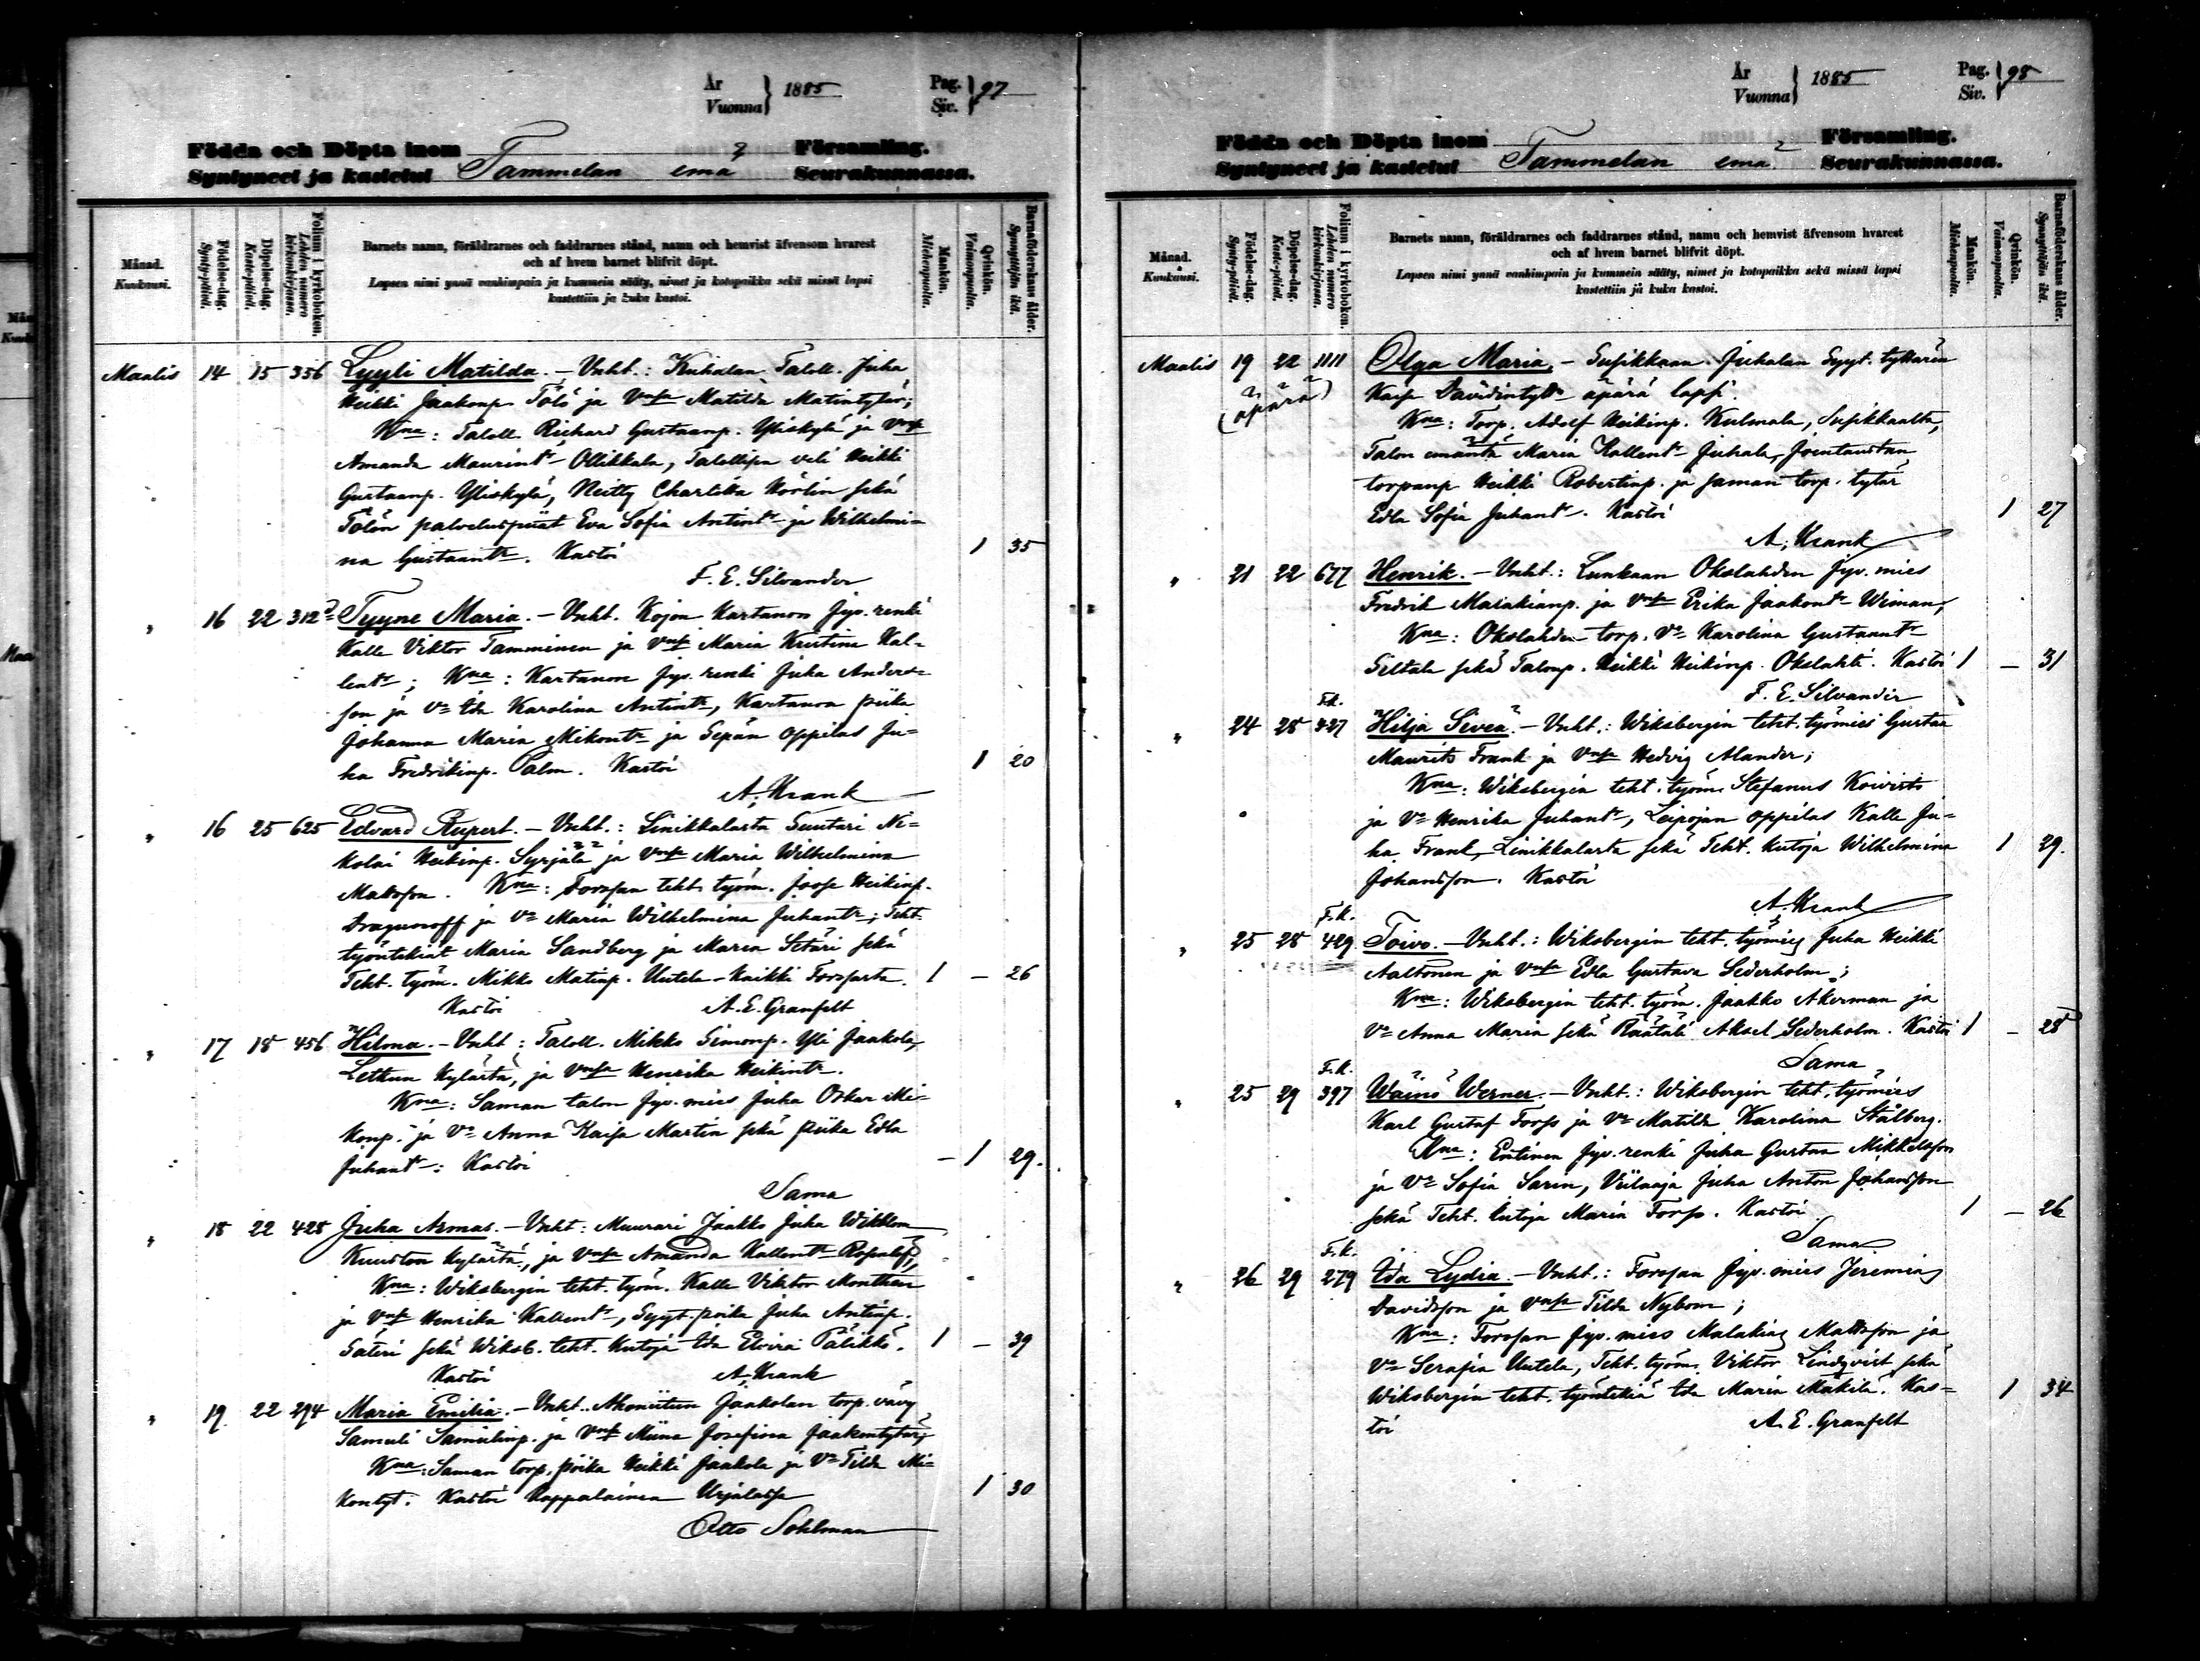 År
Vuonna } 1885
Pag.
Siv. } 97
Födda och Döpta inom Församling.
Syntyneet ja kastetut Tammelan emä Seurakunnassa.
Månad.
Kuukausi.
Födelse-dag.
Synty-päivä.
Döpelse-dag.
Kaste-päivä.
Folium i kyrkoboken.
Lehden numero kirkonkirjassa.
Barnets namn, föräldrarnes och faddrarnes stånd, namn och hemvist äfvensom hvarest
och af hvem barnet blifvit döpt.
Lapsen nimi ynnä vanhimpain ja kummein sääty, nimet ja kotopaikka sekä missä lapsi
kastettiin ja kuka kastoi.
Mankön.
Miehenpuolta.
Qvinkön.
Vaimonpuolta.
Barnaföderskans ålder.
Synnyttäjän ikä.
Maalis 14 15 356 Lyyli Matilda. – Vnht.: Kuhalan Taloll. Juha
Heikki Jaakonp. Tölö ja Vmsa Matilda Matintytär;
Kna: Taloll. Richard Gustaanp. Yliskylä ja Vmsa
Amanda Maurintr Ollikkala, Talollisen veli Heikki
Gustaanp. Yliskylä, Neitty Charlotta Norlin sekä
Tölön palveluspiiat Eva Sofia Antintr ja Wilhelmi-
na Gustaantr. Kastoi 1 35
F. E. Silvander
" 16 22 312 Tyyne Maria. – Vnht. Kojon Kartanon jyv. renki
Kalle Viktor Tamminen ja Vmsa Maria Kristina Kal-
lentr; Kna: Kartanon jyv. renki Juha Anders-
son ja Vo Ida Karolina Antintr, Kartanon piika
Johanna Maria Mikontr ja Sepän oppilas Ju-
ha Fredrikinp. Palm. Kastoi 1 20
A. Krank
" 16 25 625 Edvard Rupert. – Vnht.: Linikkalasta Suutari Ni-
kolai Heikinp. Syrjälä ja Vmsa Maria Wilhelmina
Matsson. Kna: Forssan teht. työm. Joose Heikinp.
Dragunoff ja Vo Maria Wilhelmina Juhantr; Teht.
työntekiät Maria Sandberg ja Maria Setäri sekä
Teht. työm. Mikko Matinp. Uutela – kaikki Forssasta. 1 – 26
Kastoi A. E. Granfelt
" 17 18 456 Hilma. – Vnht: Taloll. Mikko Simonp. Yli Jaakola,
Letkun kylästä, ja Vmsa Henrika Heikintr.
Kna: Saman talon jyv. mies Juha Oskar Mi-
konp. ja Vo Anna Kaisa Martin sekä piika Edla
Juhantr. Kastoi – 1 29.
Sama
" 18 22 428 Juha Armas. – Vnht: Muurari Jaakko Juha Wikblom
Kuuston kylästä, ja Vmsa Amanda Kallentr Rosenlöf,
Kna: Wiksbergin teht. työm. Kalle Viktor Monthen
ja Vmsa Henrika Kallentr, Syyt. poika Juha Antinp.
Säteri sekä Wiksb. teht. kutoja Ida Elvira Pälikkö. 1 – 39
Kastoi A. Krank
" 19. 22 294 Maria Emilia. – Vnht. Ahoniitun Jaakolan torp. vävy
Samuli Samulinp. ja Vmsa Miina Josefina Jaakontytär;
Kna: Saman torp. poika Heikki Jaakola ja Vo Tilda Mi-
kontyt. Kastoi Kappalainen Urjalassa 1 30
Otto Sohlman
År
Vuonna } 1885
Pag.
Siv. } 98
Födda och Döpta inom Församling.
Syntyneet ja kastetut Tammelan emä Seurakunnassa.
Månad.
Kuukausi.
Födelse-dag.
Synty-päivä.
Döpelse-dag.
Kaste-päivä.
Folium i kyrkoboken.
Lehden numero kirkonkirjassa.
Barnets namn, föräldrarnes och faddrarnes stånd, namn och hemvist äfvensom hvarest
och af hvem barnet blifvit döpt.
Lapsen nimi ynnä vanhimpain ja kummein sääty, nimet ja kotopaikka sekä missä lapsi
kastettiin ja kuka kastoi.
Mankön.
Miehenpuolta.
Qvinkön.
Vaimonpuolta.
Barnaföderskans ålder.
Synnyttäjän ikä.
Maalis 19 22 1111 Olga Maria. – Susikkaan Juhalan Syyt. tyttären
(äpärä) Kaisa Davidintytr äpärä lapsi.
Kna: Torp. Adolf Heikinp. Kulmala, Susikkaalta,
Talon emäntä Maria Kallentr Juhala, Joentaustan
torpanp Heikki Robertinp. ja saman torp. tytär
Edla Sofia Juhantr. Kastoi 1 27
A. Krank
" 21 22 677 Henrik. – Vnht.: Lunkaan Okslahden jyv. mies
Fredrik Malakianp. ja Vmsa Erika Jaakontr Wiman,
Kna: Okslahden torp. Vo Karolina Gustaantr
Siltala sekä Talonp. Heikki Heikinp. Okslahti. Kastoi 1 – 31
F. E. Silvander
F.k.
" 24 28 327 Hilja Sivea. – Vnht.: Wiksbergin teht. työmies Gustaa
Maurits Frank ja Vmsa Hedvig Alander;
Kna: Wiksbergin teht. työm. Stefanus Koivisto
ja Vo Henrika Juhantr, Leipojan oppilas Kalle Ju-
ha Frank, Linikkalasta sekä Teht. kutoja Wilhelmina 1 29.
Johansson. Kastoi
A. Krank
F.k.
" 25 28 429. Toivo. – Vnht.: Wiksbergin teht. työmies Juha Heikki
Aaltonen ja Vmsa Edla Gustava Sederholm;
Kna: Wiksbergin teht. työm. Jaakko Åkerman ja
Vo Anna Maria sekä Räätäli Aksel Sederholm. Kastoi 1 – 28
Sama
F.k.
" 25 29 397 Wäinö Werner. – Vnht.: Wiksbergin teht. työmies
Karl Gustaf Forss ja Vo Matilda Karolina Stålberg.
Kna: Entinen jyv. renki Juha Gustaa Mikkelsson
ja Vo Sofia Sarin, Viilaaja Juha Anton Johansson
sekä Teht. kutoja Maria Forss. Kastoi 1 – 26
Sama
F.k.
" 26 29 279 Ida Lydia. – Vnht.: Forssan jyv. mies Jeremias
Davidsson ja Vmsa Tilda Nybom;
Kna: Forssan jyv. mies Malakias Mattsson ja
Vo Serafia Uutela, Teht. työm. Viktor Lindqvist sekä
Wiksbergin teht. työntekiä Ida Maria Mäkilä. Kas- 1 34
toi A. E. Granfelt